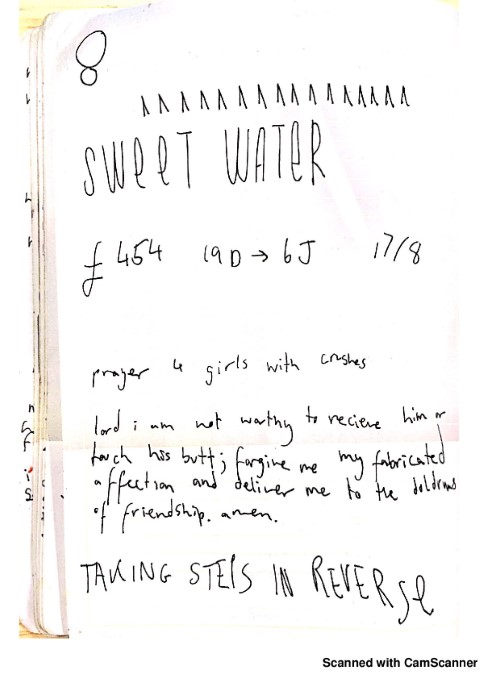 8
ʌ ʌ ʌ ʌ ʌ ʌ ʌ ʌ ʌ ʌ ʌ ʌ ʌ ʌ ʌ
SWeeT WATeR
£454 19D → 6J 17/8
prayer 4 girls with crushes
lord i am not worthy to recieve him or
touch his butt; forgive me my fabricated
affection and deliver me to the doldrums
of friendship. amen.
TAKING STEPS IN REVERSe
Scanned with CamScanner